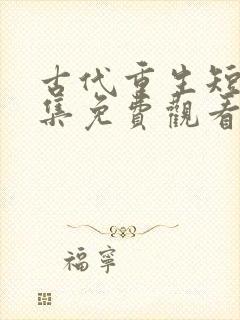 古代重生短
集免費觀看
福寧